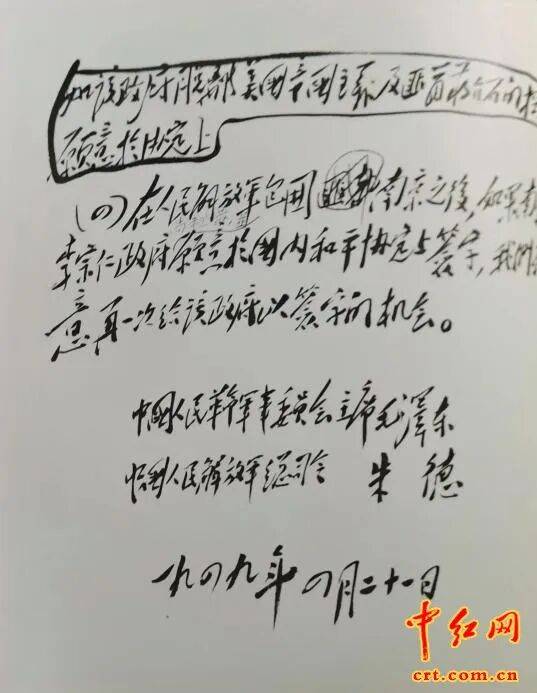 如该政府脱离美国帝国主义及匪首蒋介石的
愿意於协定上
(四)在人民解放軍包围南京之後,如果南
李宗仁政府願意於國内和平协定上簽字,我们
意再一次给该政府以簽字的机会。
中國人民革命軍事委員会主席毛澤东
中國人民解放軍總司令 朱德
一九四九年四月二十一日
中红网
crt.com.cn